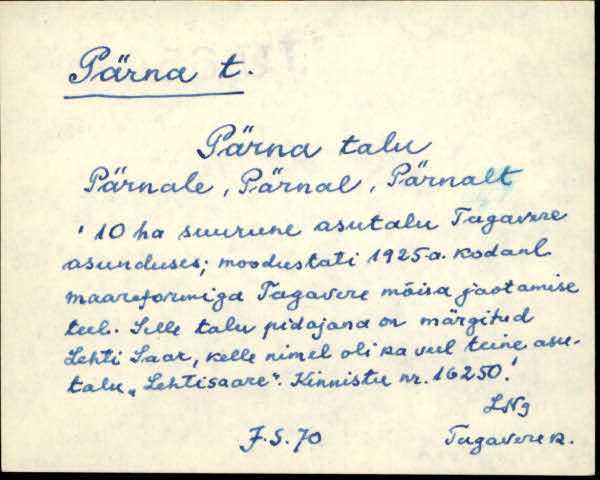 Pärna t.
Pärna talu
Pärnale, Pärnal, Pärnalt
' 10 ha suurune asutalu Tagavere
asunduses; moodustati 1925.a. kodanl.
maareformiga Tagavere mõisa jaotamise
teel. Selle talu pidajana on märgitud
Lehti Saar, kelle nimel oli ka veel teine asu-
talu „Lehtisaare". Kinnistu nr. 16250.'
J.S.70
Tagavere k.